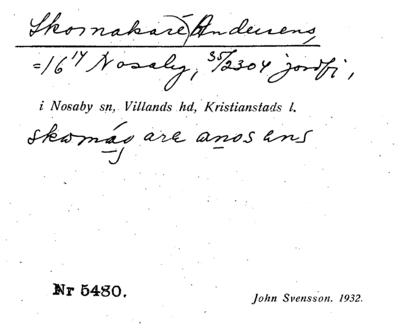 Skomakare Anderssens,
=16¹⁴ Nosaby, 35/2304 jordfi,
i Nosaby sn, Villands hd, Kristianstads l.
skomág are anos ens
Nr 5480.
John Svensson. 1932.